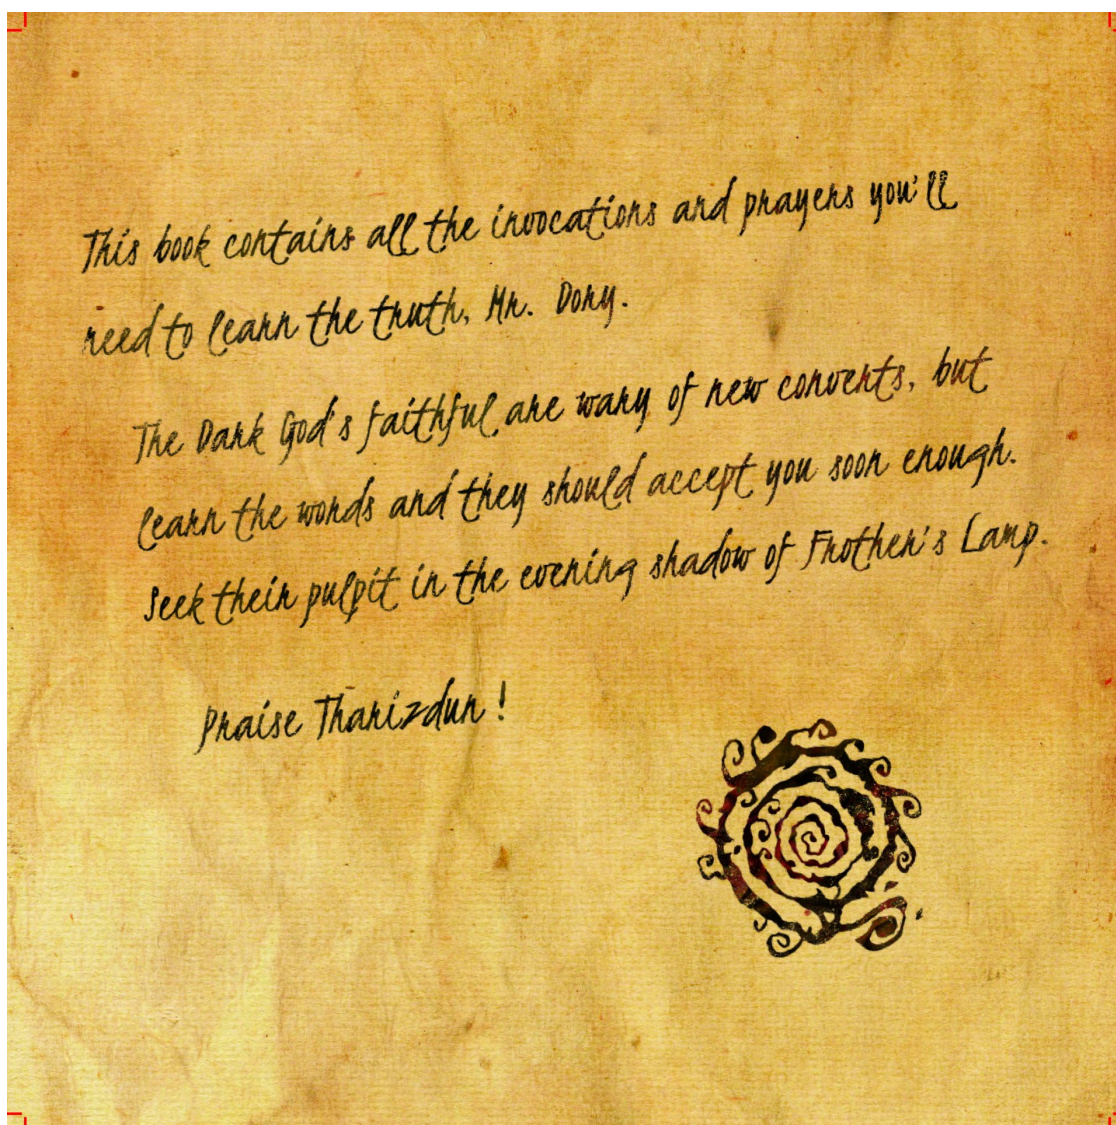 This book contains all the invocations and prayers you'll
need to learn the truth, Mr. Dory.
The Dark God's faithful are wary of new converts, but
learn the words and they should accept you soon enough.
Seek their pulpit in the evening shadow of Frother's Lamp.
Praise Tharizdun!